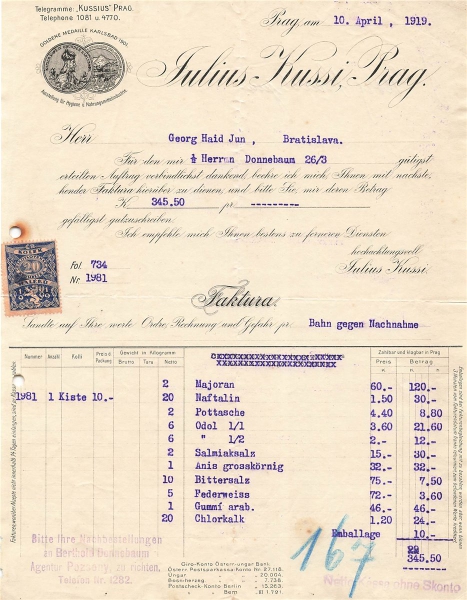 Telegramme: „KUSSIUS" PRAG.
Telephone 1081 u. 4770.
GOLDENE MEDAILLE KARLSBAD 1901.
Prag, am 10. April, 1919.
Julius Kussi, Prag.
Herr Georg Haid Jun, Bratislava.
Für den mir ½ Herren Donnebaum 26/3 gütigst
erteilten Auftrag verbindlichst dankend, beehre ich mich, Ihnen mit nachste-
hender Faktura hierüber zu dienen, und bitte Sie, mir deren Betrag
K 345.50 pr ---------
gefälligst gutzuschreiben.
Ich empfehle mich Ihnen bestens zu ferneren Diensten
hochachtungsvoll
Julius Kussi.
20
Fol. 734
Nr 1981
Faktura.
Sandte auf Ihre werte Ordre, Rechnung und Gefahr pr. Bahn gegen Nachnahme
Nummer Anzahl Kolli Preis d. Packung Gewicht in Kilogramm Brutto Tara Netto Zahlbar und klagbar in Prag Preis Betrag
K. K.
2 Majoran 60.- 120.-
1981 1 Kiste 10.- 20 Naftalin 1.50 30.-
2 Pottasche 4.40 8.80
6 Odol 1/1 3.60 21.60
6 " 1/2 2.- 12.-
2 Salmiaksalz 15.- 30.-
1 Anis grosskörnig 32.- 32.-
10 Bittersalz 75.- 7.50
5 Federweiss 72.- 3.60
1 Gummi arab. 46.- 46.-
20 Chlorkalk 1.20 24.-
Emballage 10.-
345.50
Bitte Ihre Nachbestellungen
an Berthold Donnebaum
Agentur Pozsony, zu richten.
Telefon Nr. 1282.
167
Giro-Konto Österr.-ungar Bank
Österr. Postsparkassa-Konto Nr. 27.118.
Ungar. " 20.004.
Bosn.-herzeg. " 7.738.
Postscheck-Konto Berlin " 15.263.
Bern " III 1.791.
Netto Cassa ohne Skonto